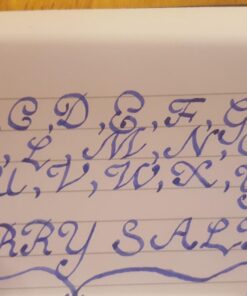 C, D, E, F, G
, L, M, N, O
U, V, W, X, Y
RRY SAL